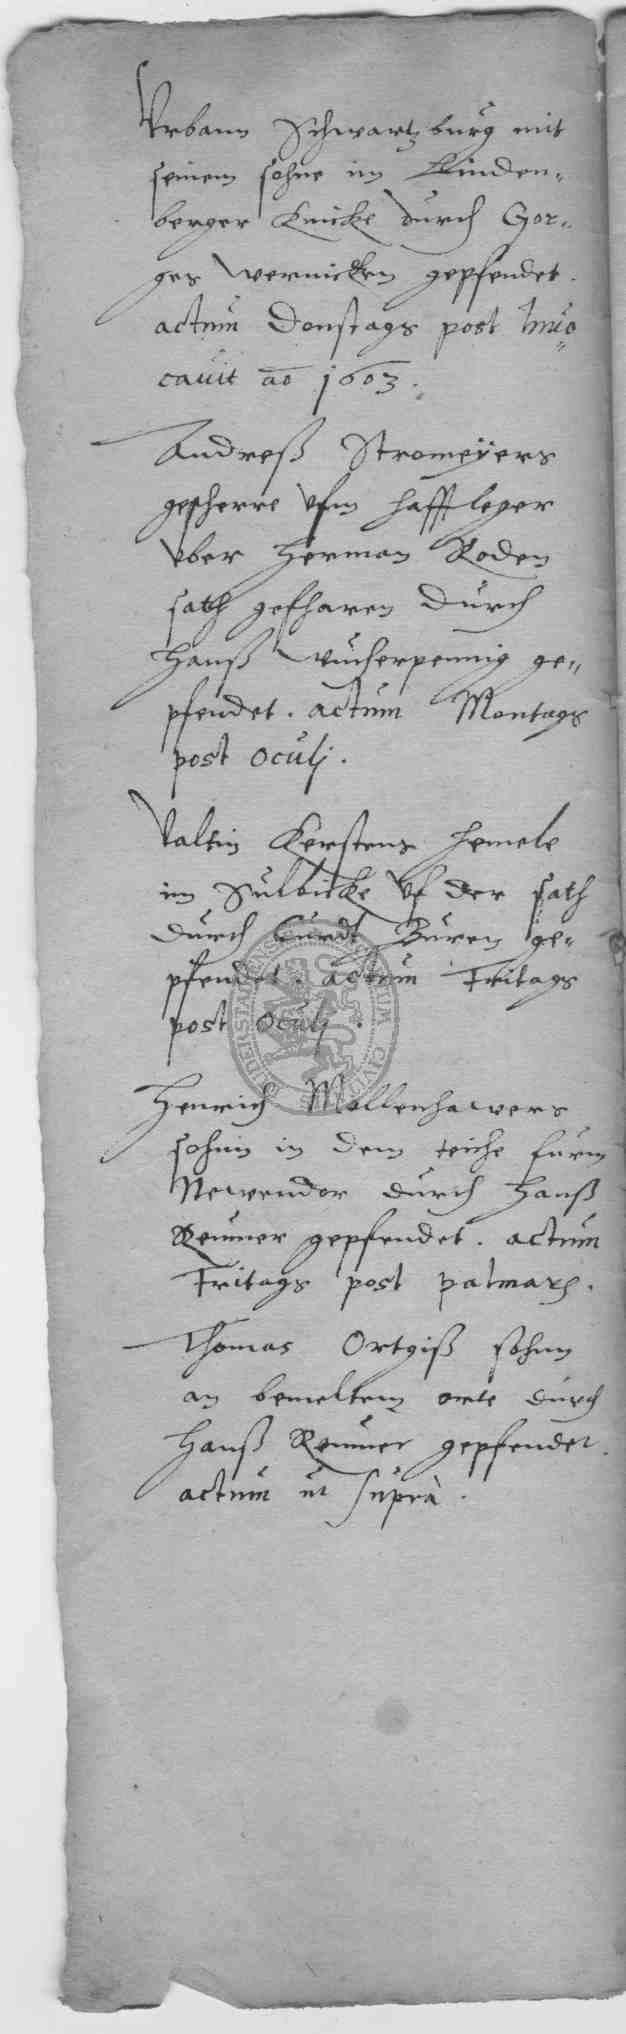 Vrbann Schwartzburg mit
seinem sohne im Linden-
berger Knicke durch Gor-
ges Wernicken gepfendet.
actum Donstags post Inuo-
cauit ao 1603.
Andreß Stromeÿers
gescherre vfm hafftleger
vber Herman Roden
sath gefharen durch
Hanß Wucherpennig ge-
pfendet. actum Montags
post oculj.
Valtin Kerstens hemele
im Sulbicke vf der sath
durch Curdt Buren ge-
pfendet. actum Fritags
post oculj.
Henrich Mollenhawers
sohnn in dem teiche furm
Newendor durch Hanß
Renner gepfendet. actum
Fritags post palmarum.
Thomas Ortgiß sohnn
an bemeltem orte durch
Hanß Renner gepfendet.
actum ut suprà.